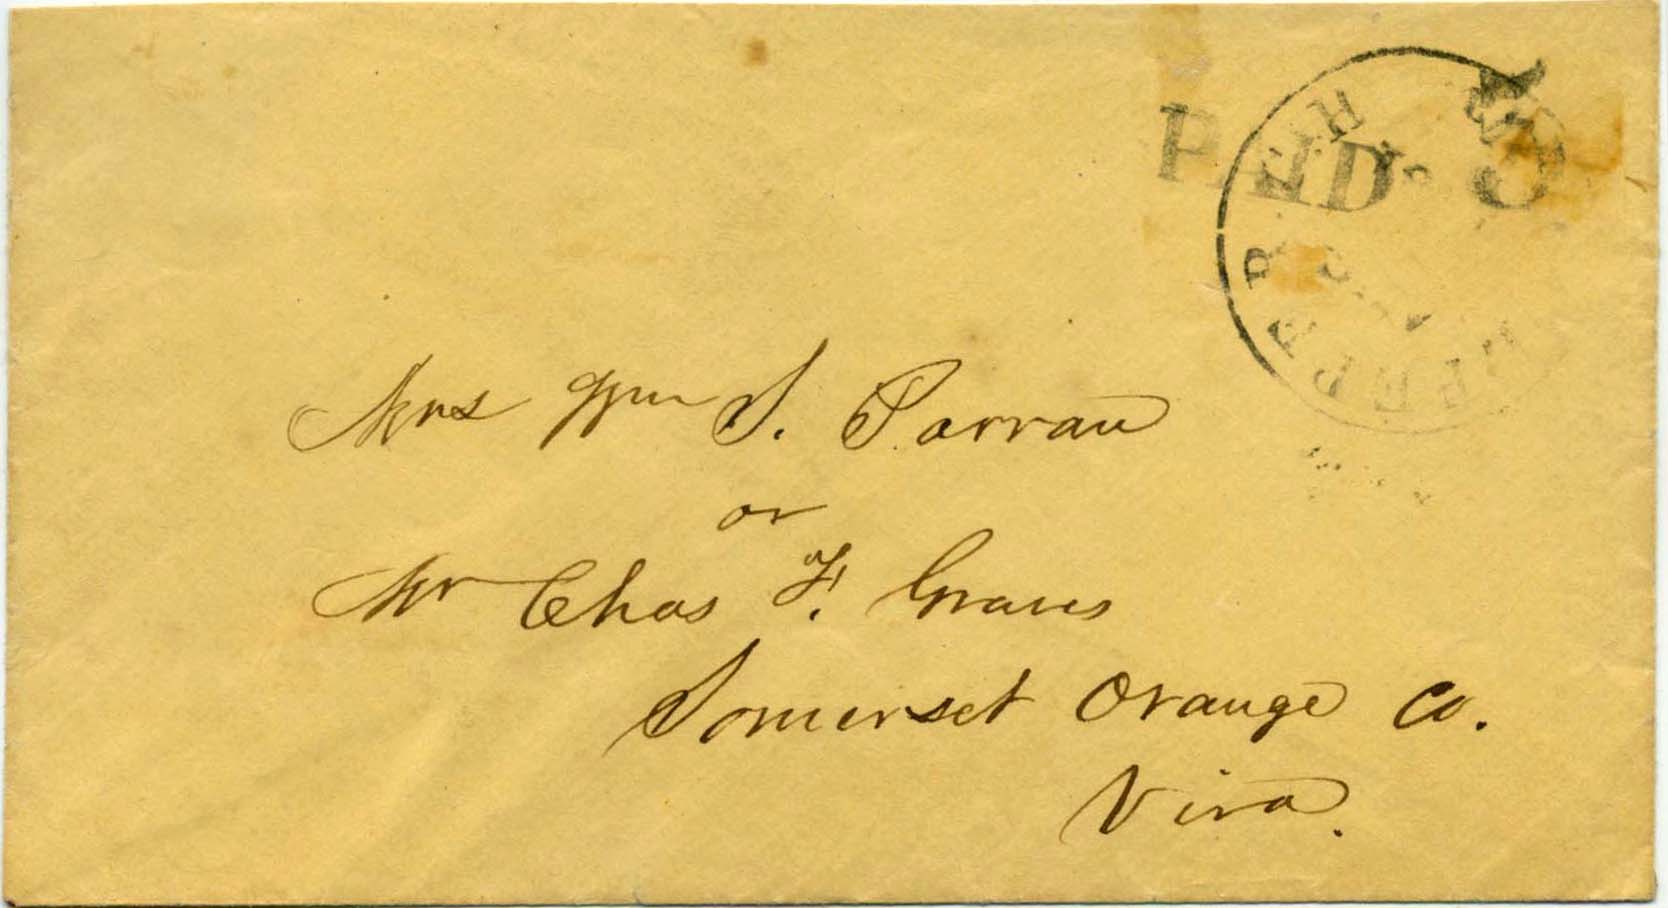 PAID 5
Mrs Wm S. Parran
or
Mr Chas F. Graves
Somerset Orange Co.
Virа.